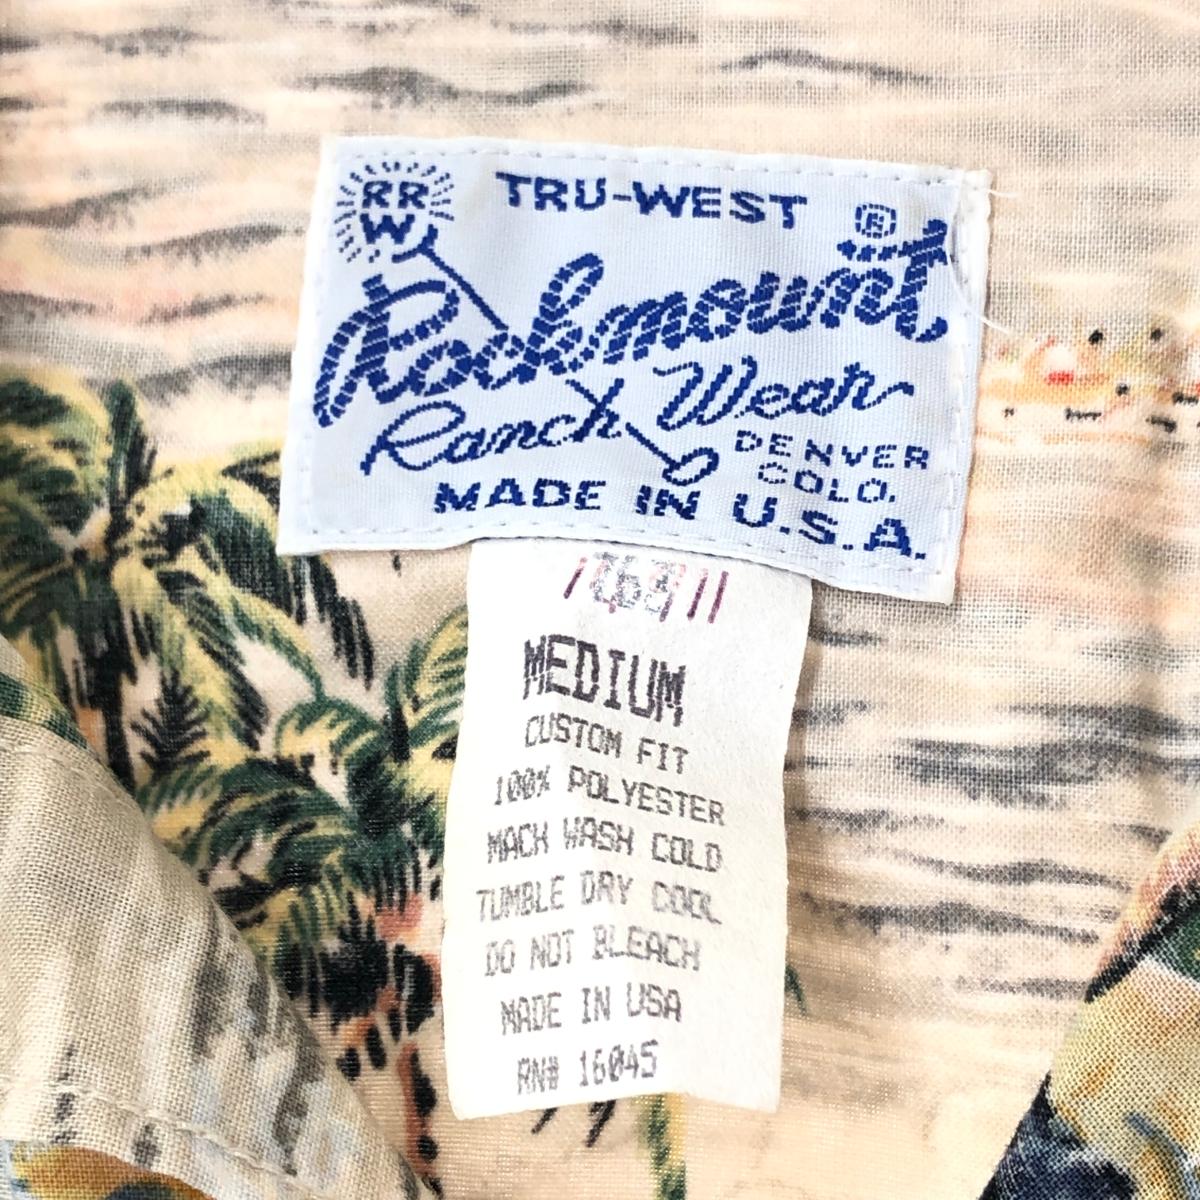 RR
W
TRU-WEST ®
Rockmount
Ranch Wear
DENVER
COLO.
MADE IN U.S.A.
MEDIUM
CUSTOM FIT
100% POLYESTER
MACH WASH COLD
TUMBLE DRY COOL
DO NOT BLEACH
MADE IN USA
RN# 16045